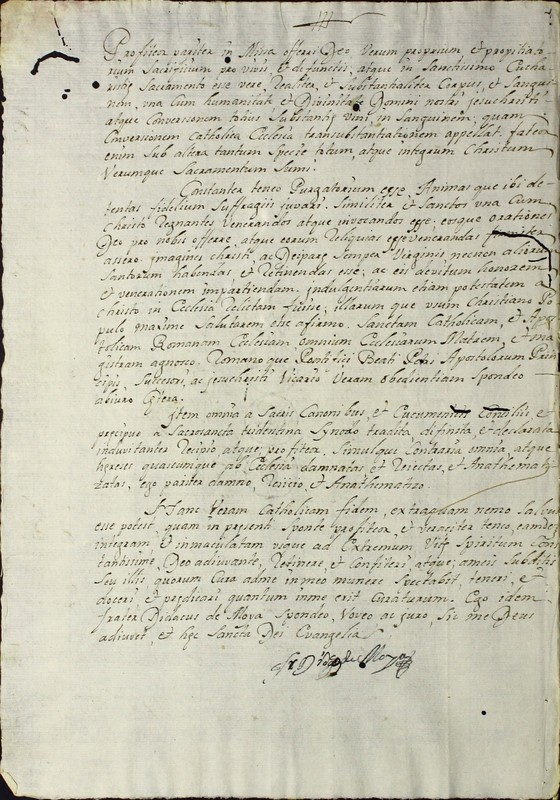 Profiteor pariter in Missa offerri Deo Verum proprium et propitiato
rium Sacrificium pro vivis, et defunctis; atque in Sanctissimo Eucha
ristiæ Sacramento esse vere, Realiter, et Substantialiter Corpus, et Sangui
nem, vna Cum humanitate et Divinitate Domini nostri jesuchristi
atque Conversionem totius Substantiæ vini, in Sanguinem; quam
Conversionem Catholica Ecclesia transubstantiationem appellat. fateor
enim Sub altera tantum Specie totum, atque integrum Christum
Verumque Sacramentum Sumi.
Constanter teneo Purgatorium esse, Animasque ibi de
tentas fidelium Suffragijs juvari. Similiter et Sanctos vna Cum
christo Regnantes Venerandos atque jnvocandos esse, eosque orationes
Deo pro nobis offerre, atque eorum Reliquias esse venerandas firmiter
assero. jmagines christi, ac Deiparæ Semper Virginis necnon aliorum
Santorum habendas et Retinendas esse, ac eis devitum honorem
et venerationem impartiendam. jndulgentiarum etiam potestatem a
christo in Ecclesia Relictam fuisse; illarumque vsum Christiano Po
pulo maxime Salutarem esse afirmo. Sanctam Catholicam, et Apos
tolicam Romanam Ecclesiam omnium Ecclesiarum Matrem, et ma
gistram agnosco. Romanoque Pontifici Beati Petri Apostolorum Prin
cipis, Sucesori, ac jesuchristi Vicario Veram obedientiam Spondeo
ac iuro
jtem omnia a Sacris Canonibus, et Ecumenicis Consilijs, et
precipue a Sacrosancta tridentina Synodo tradita definita, et declarata
induvitanter Recipio atque profiteor, Simulque Contraria omnia, atque
hereses quascumque ab Ecclesia damnatas et Reiectas, et Anathemati
zatas, ego pariter damno, Reijcio, et Anathematizo.
Hanc Veram Catholicam fidem, extraquam nemo Salvus
esse potest, quam in presenti Sponte profiteor et veraciter teneo, eamdem
integram et inmaculatam vsque ad Extremum Vitæ Spiritum Cons
tantisime, Deo adiuvante, Retinere, et Confiteri, atque; ameis Subditis
Seu illis quorum Cura adme inmeo munere Spectabit, teneri, et
doceri et predicari quantum inme erit Curaturum. Ego idem
frater Didacus de Moya Spondeo, Voveo ac juro, Sic me Deus
adiuvet, et hæc Sancta Dei Evangelia
fr Diego de Moya